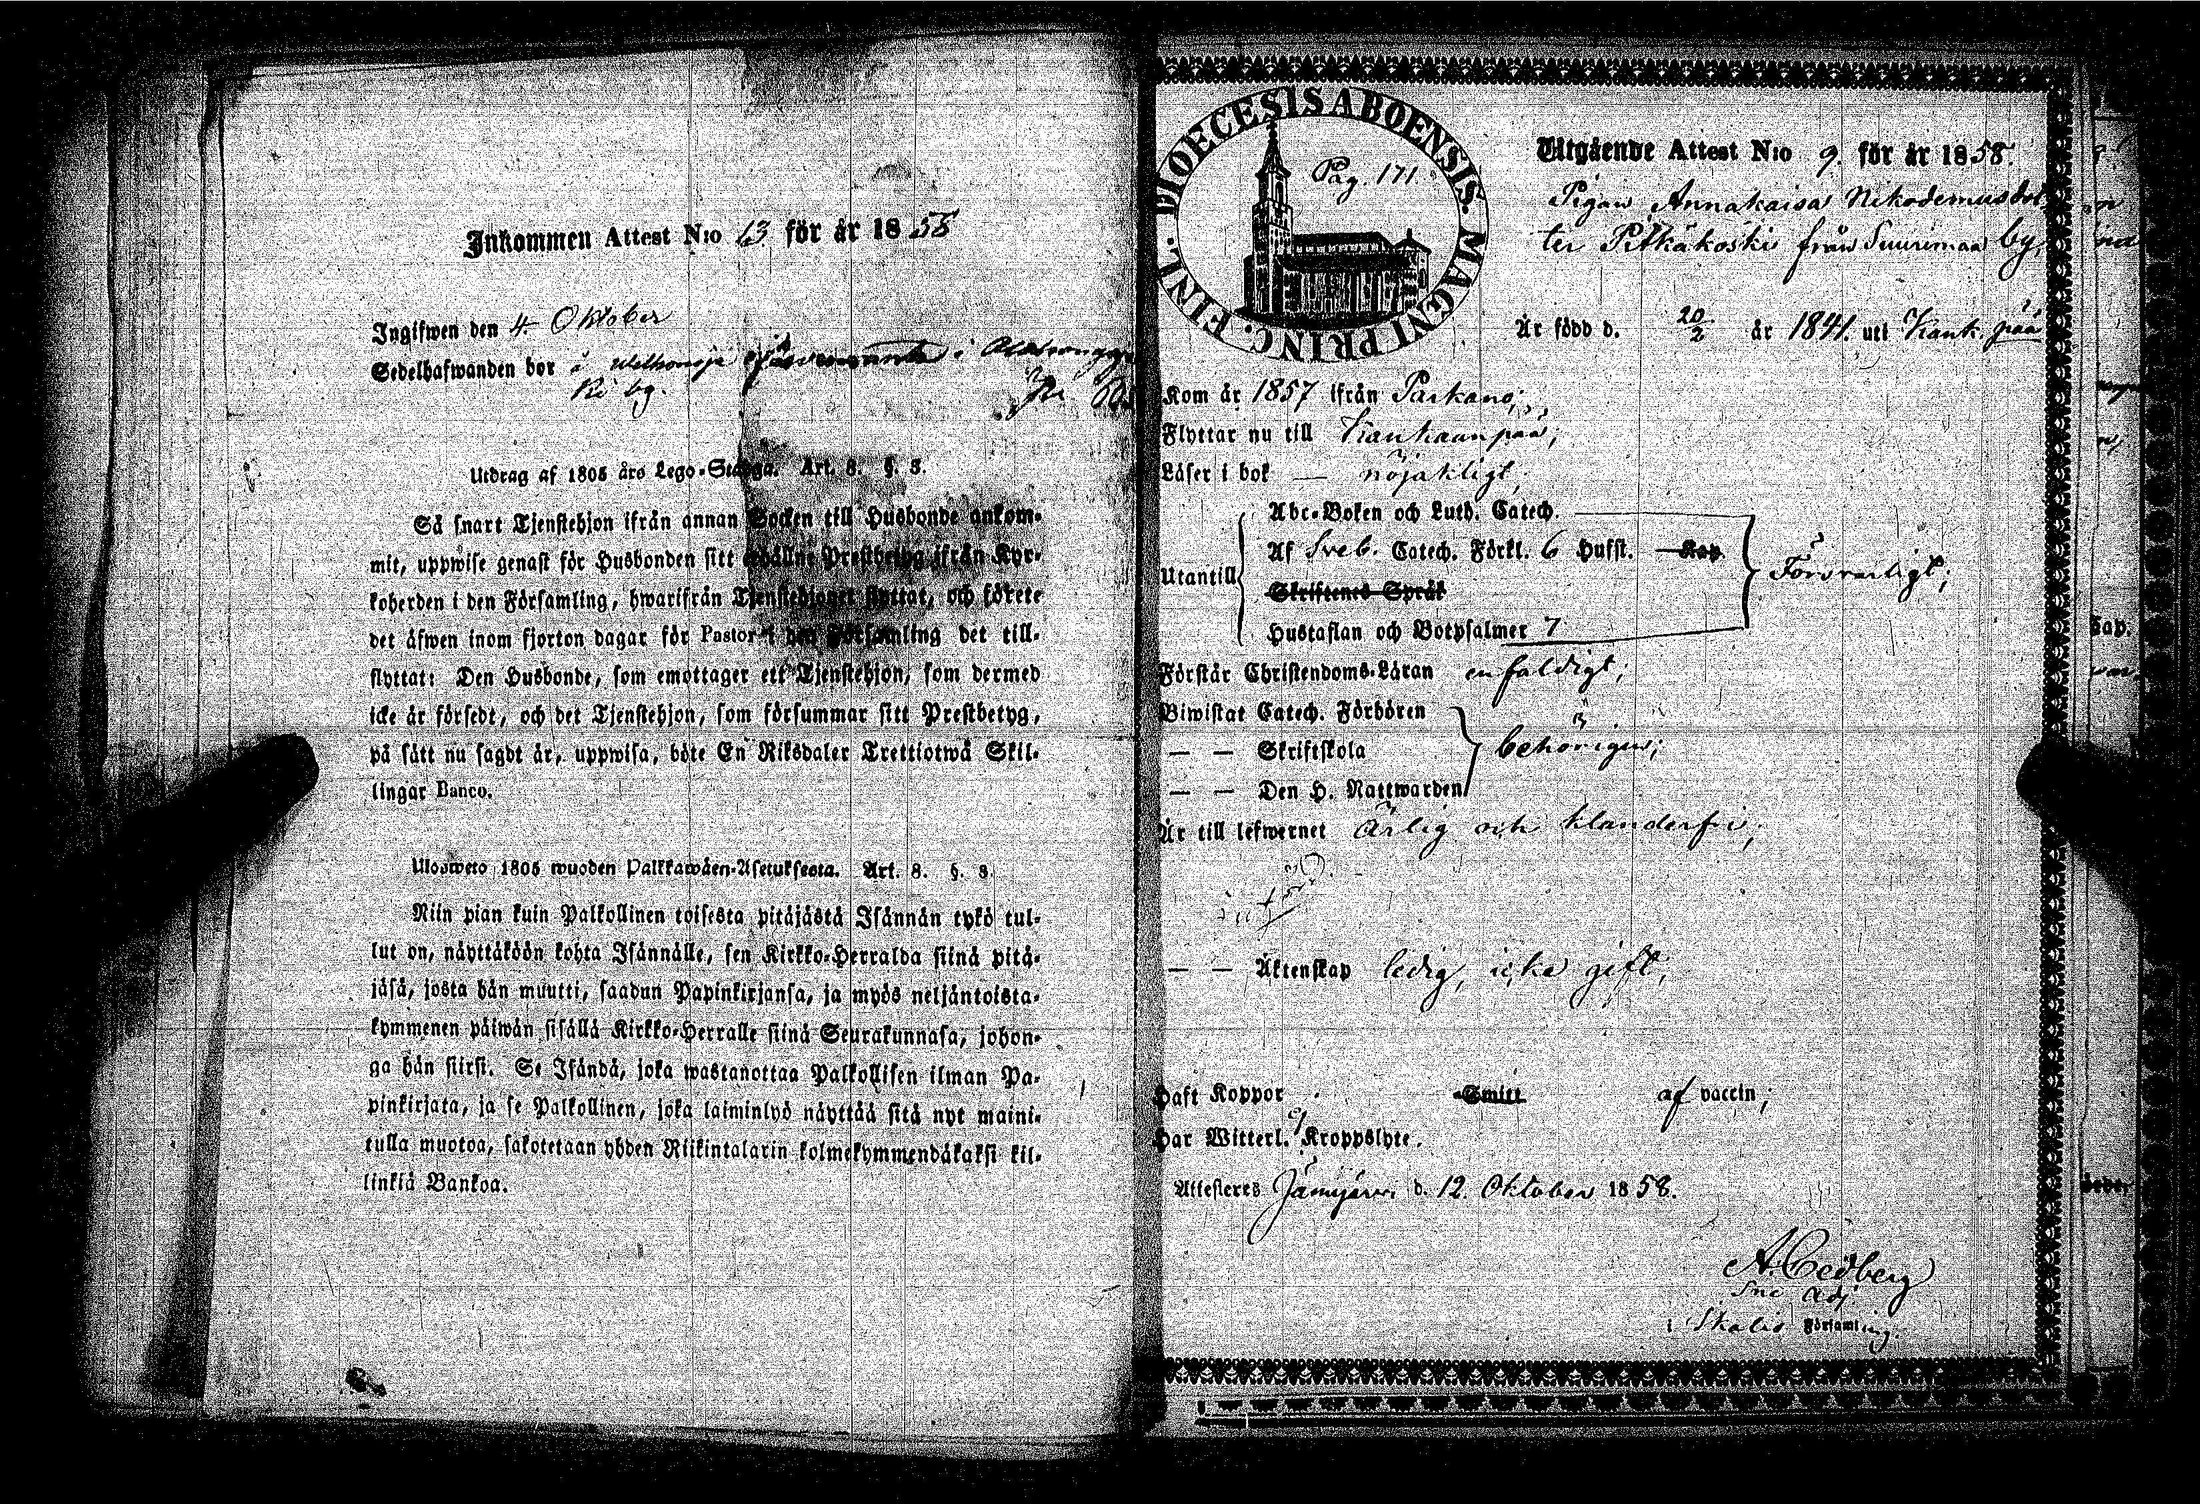 Inkommen Attest N:o 13 för år 1858
Ingifwen den 4 Oktober
Sedelhafwanden bor å
by.
Utdrag af 1805 års Lego-Stadga. Art. 8. §. 3.
Så snart Tjenstehjon ifrån annan Socken till Husbonde ankom-
mit, uppwise genast för Husbonden sitt erhållne Prestbetyg ifrån Kyr-
koherden i den Församling, hwarifrån Tjenstehjonet flyttat, och förete
det äfwen inom fjorton dagar för Pastor i den Församling det till-
flyttat: Den Husbonde, som emottager ett Tjenstehjon, som dermed
icke är försedt, och det Tjenstehjon, som försummar sitt Prestbetyg,
på sätt nu sagdt är, uppwisa, böte En Riksdaler Trettiotwå Skil-
lingar Banco.
Ulosweto 1805 wuoden Palkkawäen-Asetuksesta. Art. 8. §. 3.
Niin pian kuin Palkollinen toisesta pitäjästä Isännän tykö tul-
lut on, näyttäköön kohta Isännälle, sen Kirkko-Herralda siinä pitä-
jäsä, josta hän muutti, saadun Papinkirjansa, ja myös neljäntoista-
kymmenen päiwän sisällä Kirkko-Herralle siinä Seurakunnasa, johon-
ga hän siirsi. Se Isändä, joka wastanottaa Palkollisen ilman Pa-
pinkirjata, ja se Palkollinen, joka laiminlyö näyttää sitä nyt maini-
tulla muotoa, sakotetaan yhden Riikintalarin kolmekymmendäkaksi kil-
linkiä Bankoa.
DIOECESIS ABOENSIS. MAGNI PRINC. FINL.
Pag. 171.
Utgående Attest N:o 9. för år 1858.
Pigan Annakaisa Nikodemusdot
ter Pitkäkoski från Suurimaa by,
Är född d. 20/2 år 1841. uti Kank.pää
Kom år 1857 ifrån Parkano;
Flyttar nu till Kankaanpää;
Läser i bok — nöjaktligt,
Abc-Boken och Luth. Catech.
Utantill Af Sveb. Catech. Förkl. 6 Hufst. Kap. Försvarligt;
Skriftenes Språk
Hustaflan och Botpsalmer 7
Förstår Christendoms-Läran enfaldigt;
Biwistat Catech. Förhören
— — Skriftskola behörigen;
— — Den H. Nattwarden
Är till lefwernet Ärlig och klanderfri;
— — Äktenskap ledig, icke gift,
Haft Koppor Smitt af vaccin;
Har Witterl. ej Kroppslyte.
Attesteres Jämijärvi d. 12. Oktober 1858.
A. Cedberg
Sne Adj.
i Ikalis Församling.